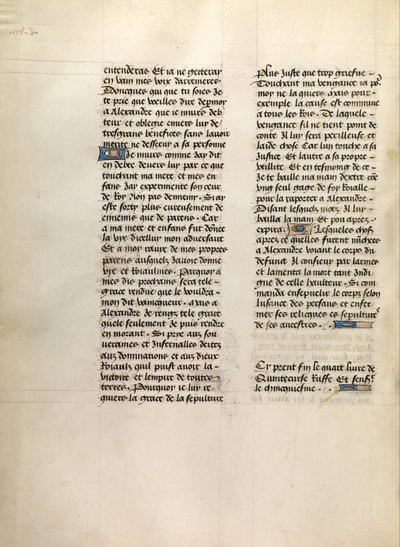 entenderas Et ia ne getteray
en vain mes voix darrenieres
Doncques qui que tu soies Je
te prie que veilles dire de moy
a Alexandre que ie muire deb
teur et obligie envers luy de
tresgrans benefices sans lavoir
merite ne desservy a sa personne
Je muire comme iay dit
en debte devers luy par ce que
touchant ma mere et mes en
fans Jay experimente son cueur
de Roy Non pas dennemy. Si ay
este forty plus eureusement de
ennemie que de parens. Car
a ma mere et enfans fut donee
la vye dicelluy mon adversaire
Et a moy toute de mes propres
parens ausquels Javoie donne
vye et Roiaulmes. Parquoy a
mes diz prochains sera telle
grace rendue que le vouldra
mon dit vaincqueur. Mais a
Alexandre Je rengz telle grace
quele seulement Je puis rendre
en morant. Si prie aux sou
veraines et Infernalles deitez
aux dominations et aux dieux
Roiaulx quil puist avoir la
victoire et lempire de toutes
terres. Pourquoy ie luy re
quiere la grace de la sepulture
plus Juste que trop griefue
Touchant ma vengance ia po
moy ne la quiere mais pour
exemple la cause est commune
a tous les Rois. De laquele
vengance sil ne tient point de
conte Il luy sera perilleuse et
laide chose Car lun touche a sa
Justice Et lautre a sa propre
utilite Et en tesmoing de ce
Je te baille ma main dextre co
ung seul gaige de foy Roialle
pour la raporter a Alexandre
Disant lesquels motz Il luy
bailla la main Et pou apres
expira. Lesqueles choses
apres ce quelles furent nuncheez
a Alexandre voiant le corps du
defunct Il confieur par larmes
et lamenta la mort tant Indi
gne de celle haulteur. Si com
manda ensepvelir le corps selon
lusance des persans et enfer
mer ses reliques es sepultures
de ses ancestres.
Cy prent fin le quart livre de
Quintecurse Ruffe Et sensuit
le chincquiesme.